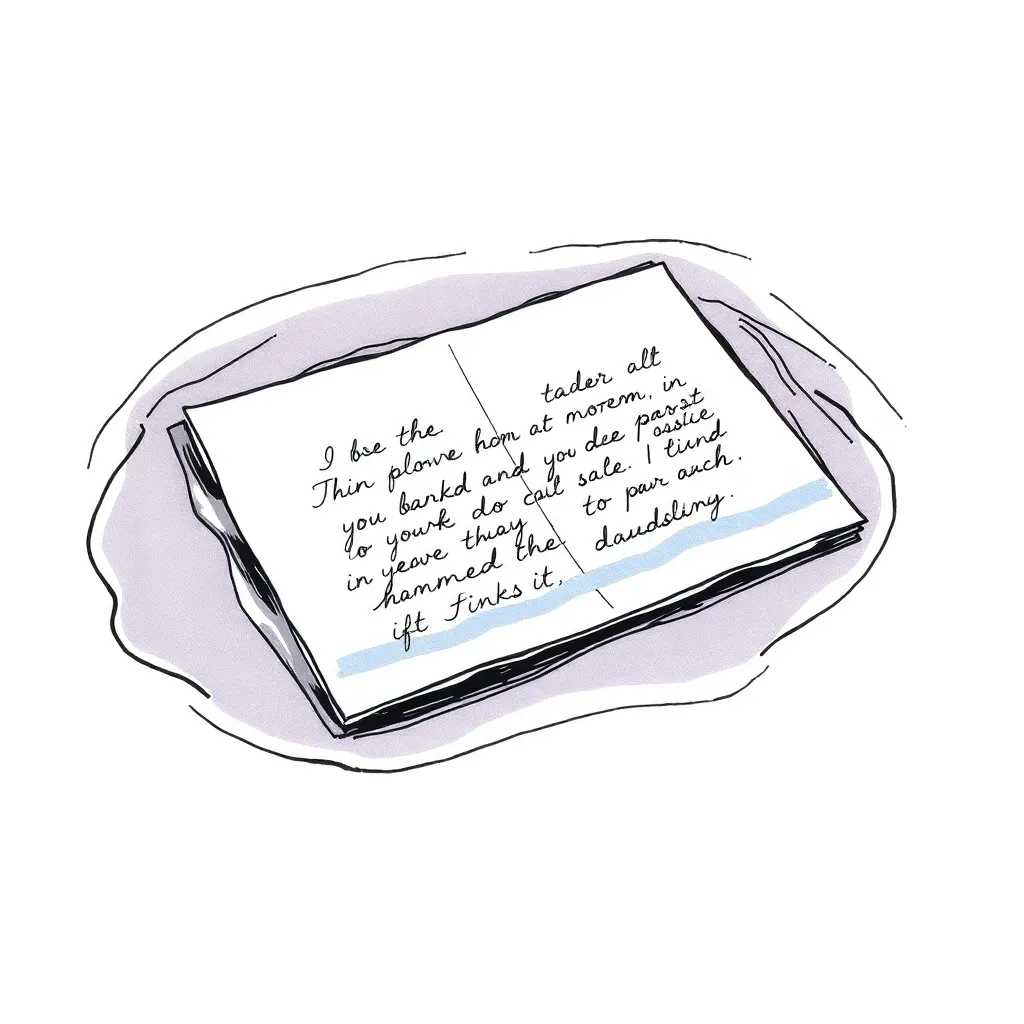 I bse the. tader alt
Thin plowve hom at morem, in
you bankd and you dee past
to yourk do cail sale. I tiind
in yeave thuay to pavr auch.
hammed the daudsliny.
ift Finks it,